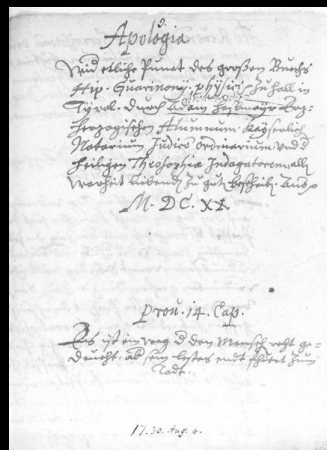 Apologia
Wid etliche Punct des großen Buchs
Hip. Guarinonj. physici Zu hall in
Tyrol. durch Adam Haslmayr Erz-
herzogischen Alumnum. Kayserlich
Notarium Judice ordinarium und d
heiligen Theosophiæ Indagatorem, all
warheit liebenden zu gut
M. DC. XX.
Prou. 14. Cap.
Es ist ein weg d den Mensch recht ge-
deucht. ab sein letztes endt fhüert zum
Todt.
1730. Aug. 4.